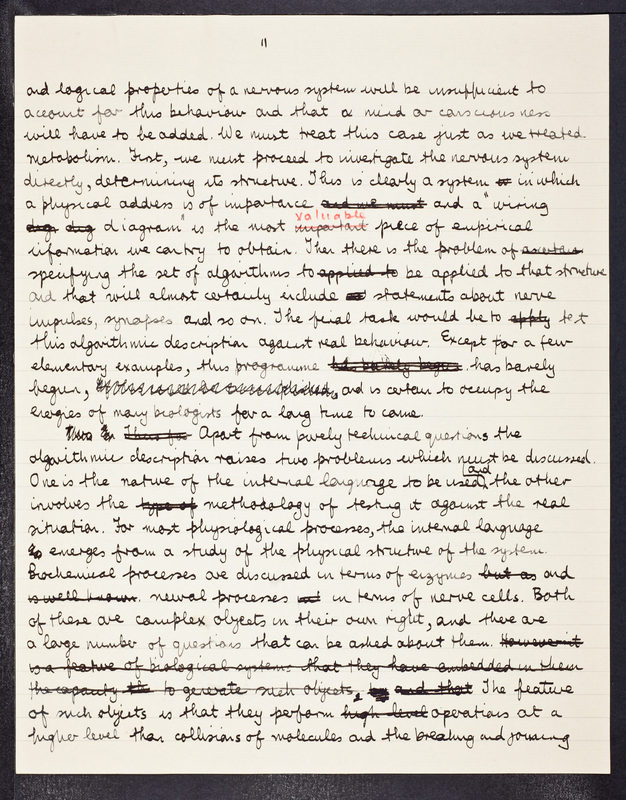 11
and logical properties of a nervous system will be insufficient to
account for this behaviour and that a mind or consciousness
will have to be added. We must treat this case just as we treated
metabolism. First, we must proceed to investigate the nervous system
directly, determining its structure. This is clearly a system in which
a physical address is of importance and we must and a "wiring
valuable
diagram" is the most important piece of empirical
information we can try to obtain. Then there is the problem of
specifying the set of algorithms to applied to be applied to that structure
and that will almost certainly include statements about nerve
impulses, synapses and so on. The final task would be to apply test
this algorithmic description against real behaviour. Except for a few
elementary examples, this programme has barely begun has barely
begun, and is certain to occupy the
energies of many biologists for a long time to come.
Apart from purely technical questions the
algorithmic description raises two problems which must be discussed.
and
One is the nature of the internal language to be used, the other
involves the type of methodology of testing it against the real
situation. For most physiological processes, the internal language
emerges from a study of the physical structure of the system.
Biochemical processes are discussed in terms of enzymes but as and
is well known. neural processes in terms of nerve cells. Both
of these are complex objects in their own right, and there are
a large number of questions that can be asked about them. However it
is a feature of biological systems that they have embedded in them
the capacity to generate such objects, and that The feature
of such objects is that they perform high level operations at a
higher level than collisions of molecules and the breaking and forming